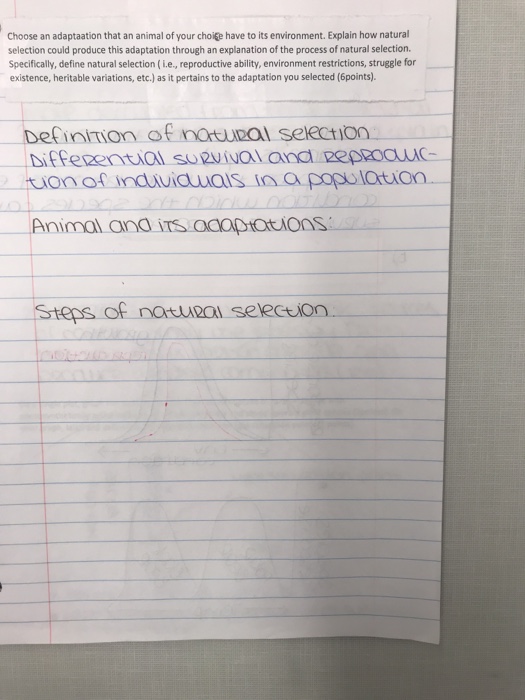 Choose an adaptaation that an animal of your choice have to its environment. Explain how natural
selection could produce this adaptation through an explanation of the process of natural selection.
Specifically, define natural selection ( i.e., reproductive ability, environment restrictions, struggle for
existence, heritable variations, etc.) as it pertains to the adaptation you selected (6points).
Definition of natural selection
Differential survival and reproduc-
tion of individuals in a population.
Animal and its adaptations:
Steps of natural selection.